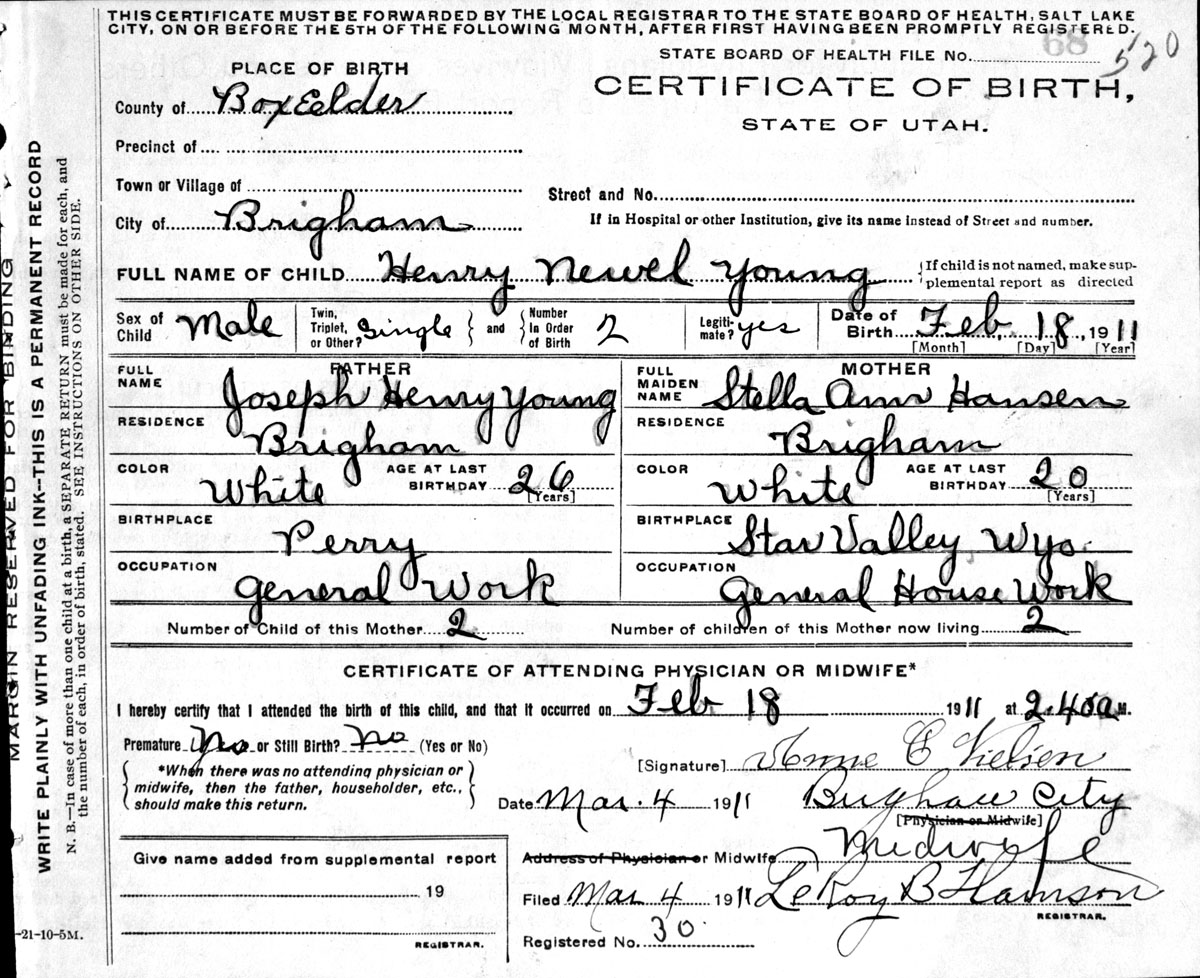 THIS CERTIFICATE MUST BE FORWARDED BY THE LOCAL REGISTRAR TO THE STATE BOARD OF HEALTH, SALT LAKE
CITY, ON OR BEFORE THE 5TH OF THE FOLLOWING MONTH, AFTER FIRST HAVING BEEN PROMPTLY REGISTERED.
68
STATE BOARD OF HEALTH FILE No. 520
PLACE OF BIRTH
CERTIFICATE OF BIRTH,
County of Box Eelder
STATE OF UTAH.
Precinct of
Town or Village of
Street and No.
City of Brigham
If in Hospital or other Institution, give its name instead of Street and number.
FULL NAME OF CHILD Henry Newel Young
{If child is not named, make sup-
plemental report as directed
Sex of Child Male
Twin, Triplet, or Other? Single } and { Number In Order of Birth 2
Legiti-mate? yes
Date of Birth Feb. 18, 1911
[Month] [Day] [Year]
FATHER
FULL NAME Joseph Henry Young
RESIDENCE Brigham
COLOR White AGE AT LAST BIRTHDAY 26 [Years]
BIRTHPLACE Perry
OCCUPATION General Work
MOTHER
FULL MAIDEN NAME Stella Ann Hansen
RESIDENCE Brigham
COLOR White AGE AT LAST BIRTHDAY 20 [Years]
BIRTHPLACE Star Valley Wyo.
OCCUPATION General House Work
Number of Child of this Mother 2 Number of children of this Mother now living 2
CERTIFICATE OF ATTENDING PHYSICIAN OR MIDWIFE*
I hereby certify that I attended the birth of this child, and that it occurred on Feb 18 1911 at 2.40 a M.
Premature No or Still Birth? No (Yes or No)
{ *When there was no attending physician or
midwife, then the father, householder, etc.,
should make this return. }
[Signature] Anne C Nielsen
Date Mar. 4 1911 Brigham City
[Physician or Midwife]
Address of Physician or Midwife Midwife
Filed Mar 4 1911 LeRoy B
REGISTRAR.
Registered No. 30
Give name added from supplemental report
19
REGISTRAR.
-21-10-5M.
MARGIN RESERVED FOR BINDING
WRITE PLAINLY WITH UNFADING INK--THIS IS A PERMANENT RECORD
N. B.—In case of more than one child at a birth, a SEPARATE RETURN must be made for each, and
the number of each, in order of birth, stated. SEE INSTRUCTIONS ON OTHER SIDE.